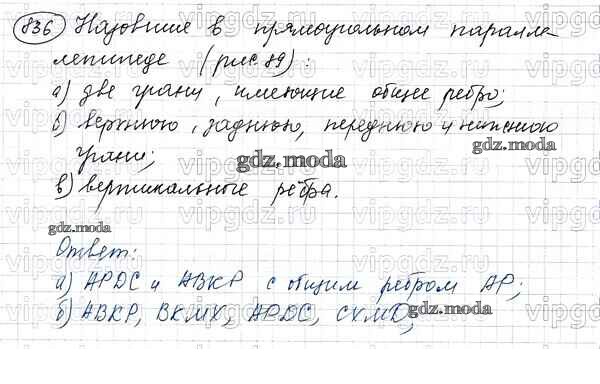 836 Назовите в прямоугольном паралле
лепипеде (рис. 89):
а) две грани, имеющие общее ребро;
б) верхнюю, заднюю, переднюю и нижнюю
грани;
gdz.moda
gdz.moda
в) вертикальные рёбра.
gdz.moda
Ответ:
а) APDC и ABKP с общим ребром AP;
б) ABKP, BKMX, APDC, CXMD,
gdz.moda
vipgdz.ru